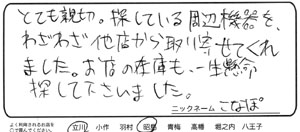 とても親切。探している周辺機器を、
わざわざ他店から取り寄せてくれ
ました。お店の在庫も、一生懸命
探して下さいました。
ニックネーム こなぽ
よく利用されるお店を
○で囲んでください。 立川 小作 羽村 昭島 青梅 高幡 堀之内 八王子